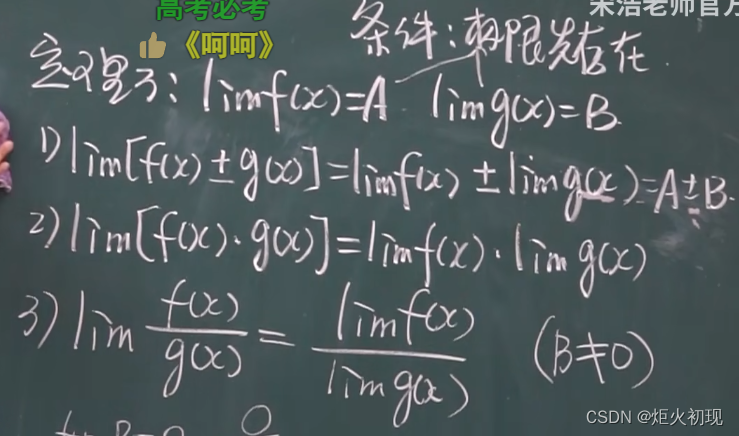 高考必考
《呵呵》
宋浩老师官方
条件:极限先存在.
定理3: lim f(x)=A lim g(x)=B.
1) lim[f(x)±g(x)]=lim f(x)±lim g(x)=A±B.
2) lim[f(x)·g(x)]=lim f(x)·lim g(x)
3) lim f(x)/g(x) = lim f(x)/lim g(x) (B≠0)
CSDN @炬火初现